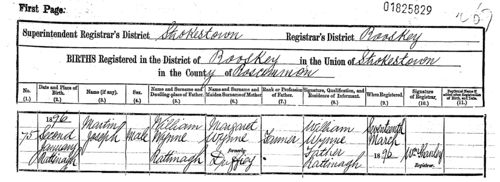 First Page.
01825829
Superintendent Registrar's District Strokestown Registrar's District Rooskey
BIRTHS Registered in the District of Rooskey in the Union of Strokestown
in the County of Roscommon
No. Date and Place of Birth. Name (if any). Sex. Name and Surname and Dwelling-place of Father. Name and Surname and Maiden Surname of Mother. Rank or Profession of Father. Signature, Qualification, and Residence of Informant. When Registered. Signature of Registrar.
(1.) (2.) (3.) (4.) (5.) (6.) (7.) (8.) (9.) (10.) (11.)
1896 Martin William Margaret William Seventeenth
75 Second Joseph Male Wynne Wynne Farmer Wynne March
January Rattinagh formerly Father 1896
Rattinagh Duffy Rattinagh Registrar.